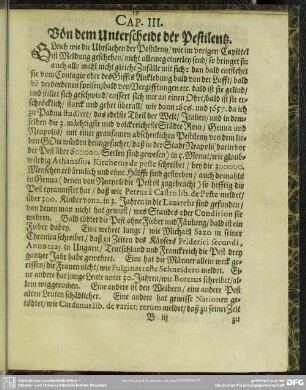 CAP. III.
Von dem Unterscheidt der Pestilentz.
GLeich wie die Ubrsachen der Pestilentz / wie im vorigen Capittel
ist Meldung geschehen / nicht allewege einerley sind / so bringet sie
auch alle mahl nicht gleiche Zufälle mit sich: dan bald entstehet
sie vom Contagio oder des Giffts Anklebung bald von der Lufft / bald
von verdorbenen speisen / bald von Vergifftungen etc. bald ist sie ge-
linde / und stillet sich geschwind / eussert sich nur an einen Ohrt / bald ist sie er-
schröcklich / starck und gehet überall / wie dann A. 1656. und 1657. da ich
zu Padua studirte / das edelste Theil der Welt / Italien / und in dem-
selben die 3. mächtigste und volckreicheste Städte Rom / Genua und
Neapolis / mit einer grausamen abscheulichen Pestilentz von dem lie-
ben GOtt wurden heimgesuchet / daß in der Stadt Neapoli darin vor
der Pest über 600000. Seelen sind gewesen / in 5. Monat / wie glaub-
würdig Athanasius Kircherus de peste schreibet / bey die 300000.
Menschen erbärmlich und ohne Hülffe sind gestorben / auch domahls
in Genua / (denen von Neapoli die Pestis zugebracht) so hefftig die
Pest tyrannisiret hat / daß wie Petrus à Castro lib. de Peste meldet /
über 300. Kinder von 2. in 3. Jahren in die Lazarethe sind gefunden /
von denen man nicht hat gewust / wes Standes oder Condition sie
wehren. Bald tödtet die Pest ohne Fieber und Fäulung / bald ist ein
Fieber dabey. Eine wehret lange / wie Michaël Saxo in seiner
Chronica schreibet / daß zu Zeiten des Käysers Friderici secundi,
Anno 1235. in Ungarn / Teutschland und Franckreich die Pest drey
gantzer Jahr habe gewehret. Eine hat die Männer allein weck ge-
rissen / die Frauen nicht / wie Fulginas teste Schneidero meldet. Ei-
ne andere hat junge Leute unter 20. Jahren / wie Boterus schreibet / al-
lein weggenommen. Eine andere ist den Weibern / eine andere Pest
alten Leuten schädlicher. Eine andere hat gewisse Nationen ge-
tödtet / wie Cardanus lib. de variet. rerum meldet / daß zu seiner Zeit
B iij
zu